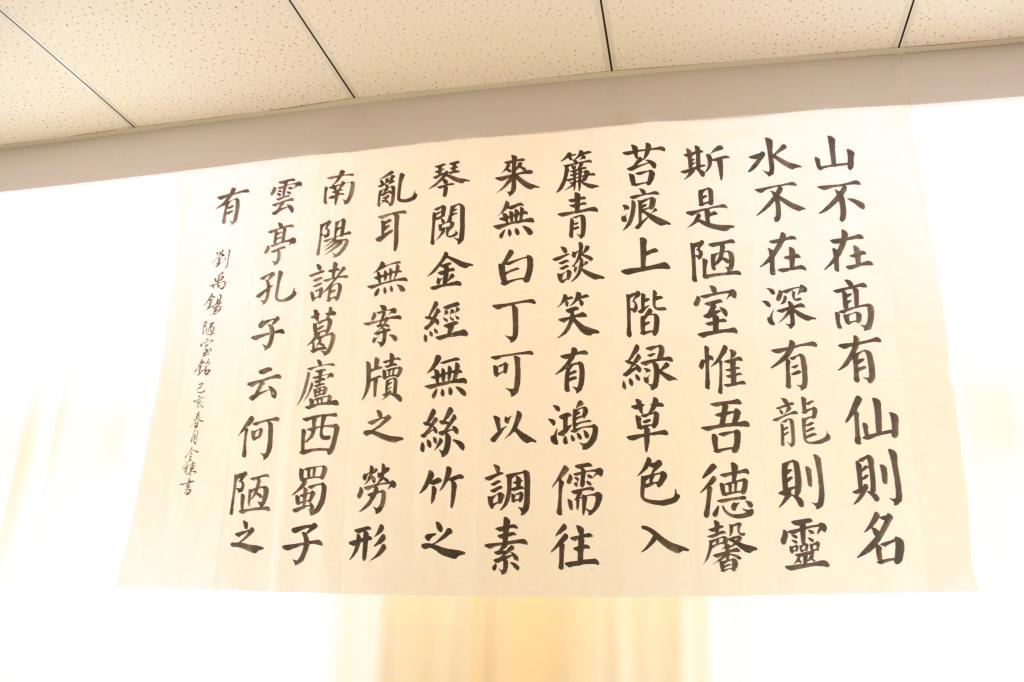 山不在髙有仙則名
水不在深有龍則靈
斯是陋室惟吾德馨
苔痕上階緑草色入
簾青談笑有鴻儒往
來無白丁可以調素
琴閱金經無絲竹之
亂耳無案牘之勞形
南陽諸葛廬西蜀子
雲亭孔子云何陋之
有
劉禹錫陋室銘己亥春月全棟書